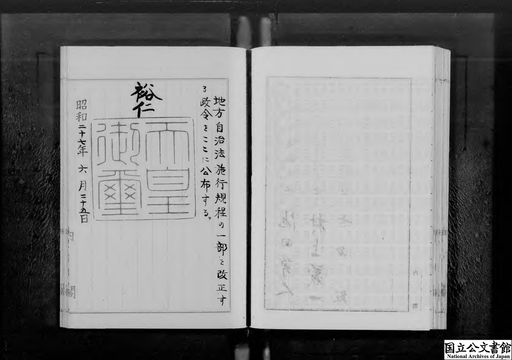 地方自治法施行規程の一部を改正す
る政令をここに公布する。
裕仁
天皇
御璽
昭和二十七年六月二十五日
内閣
国立公文書館
National Archives of Japan